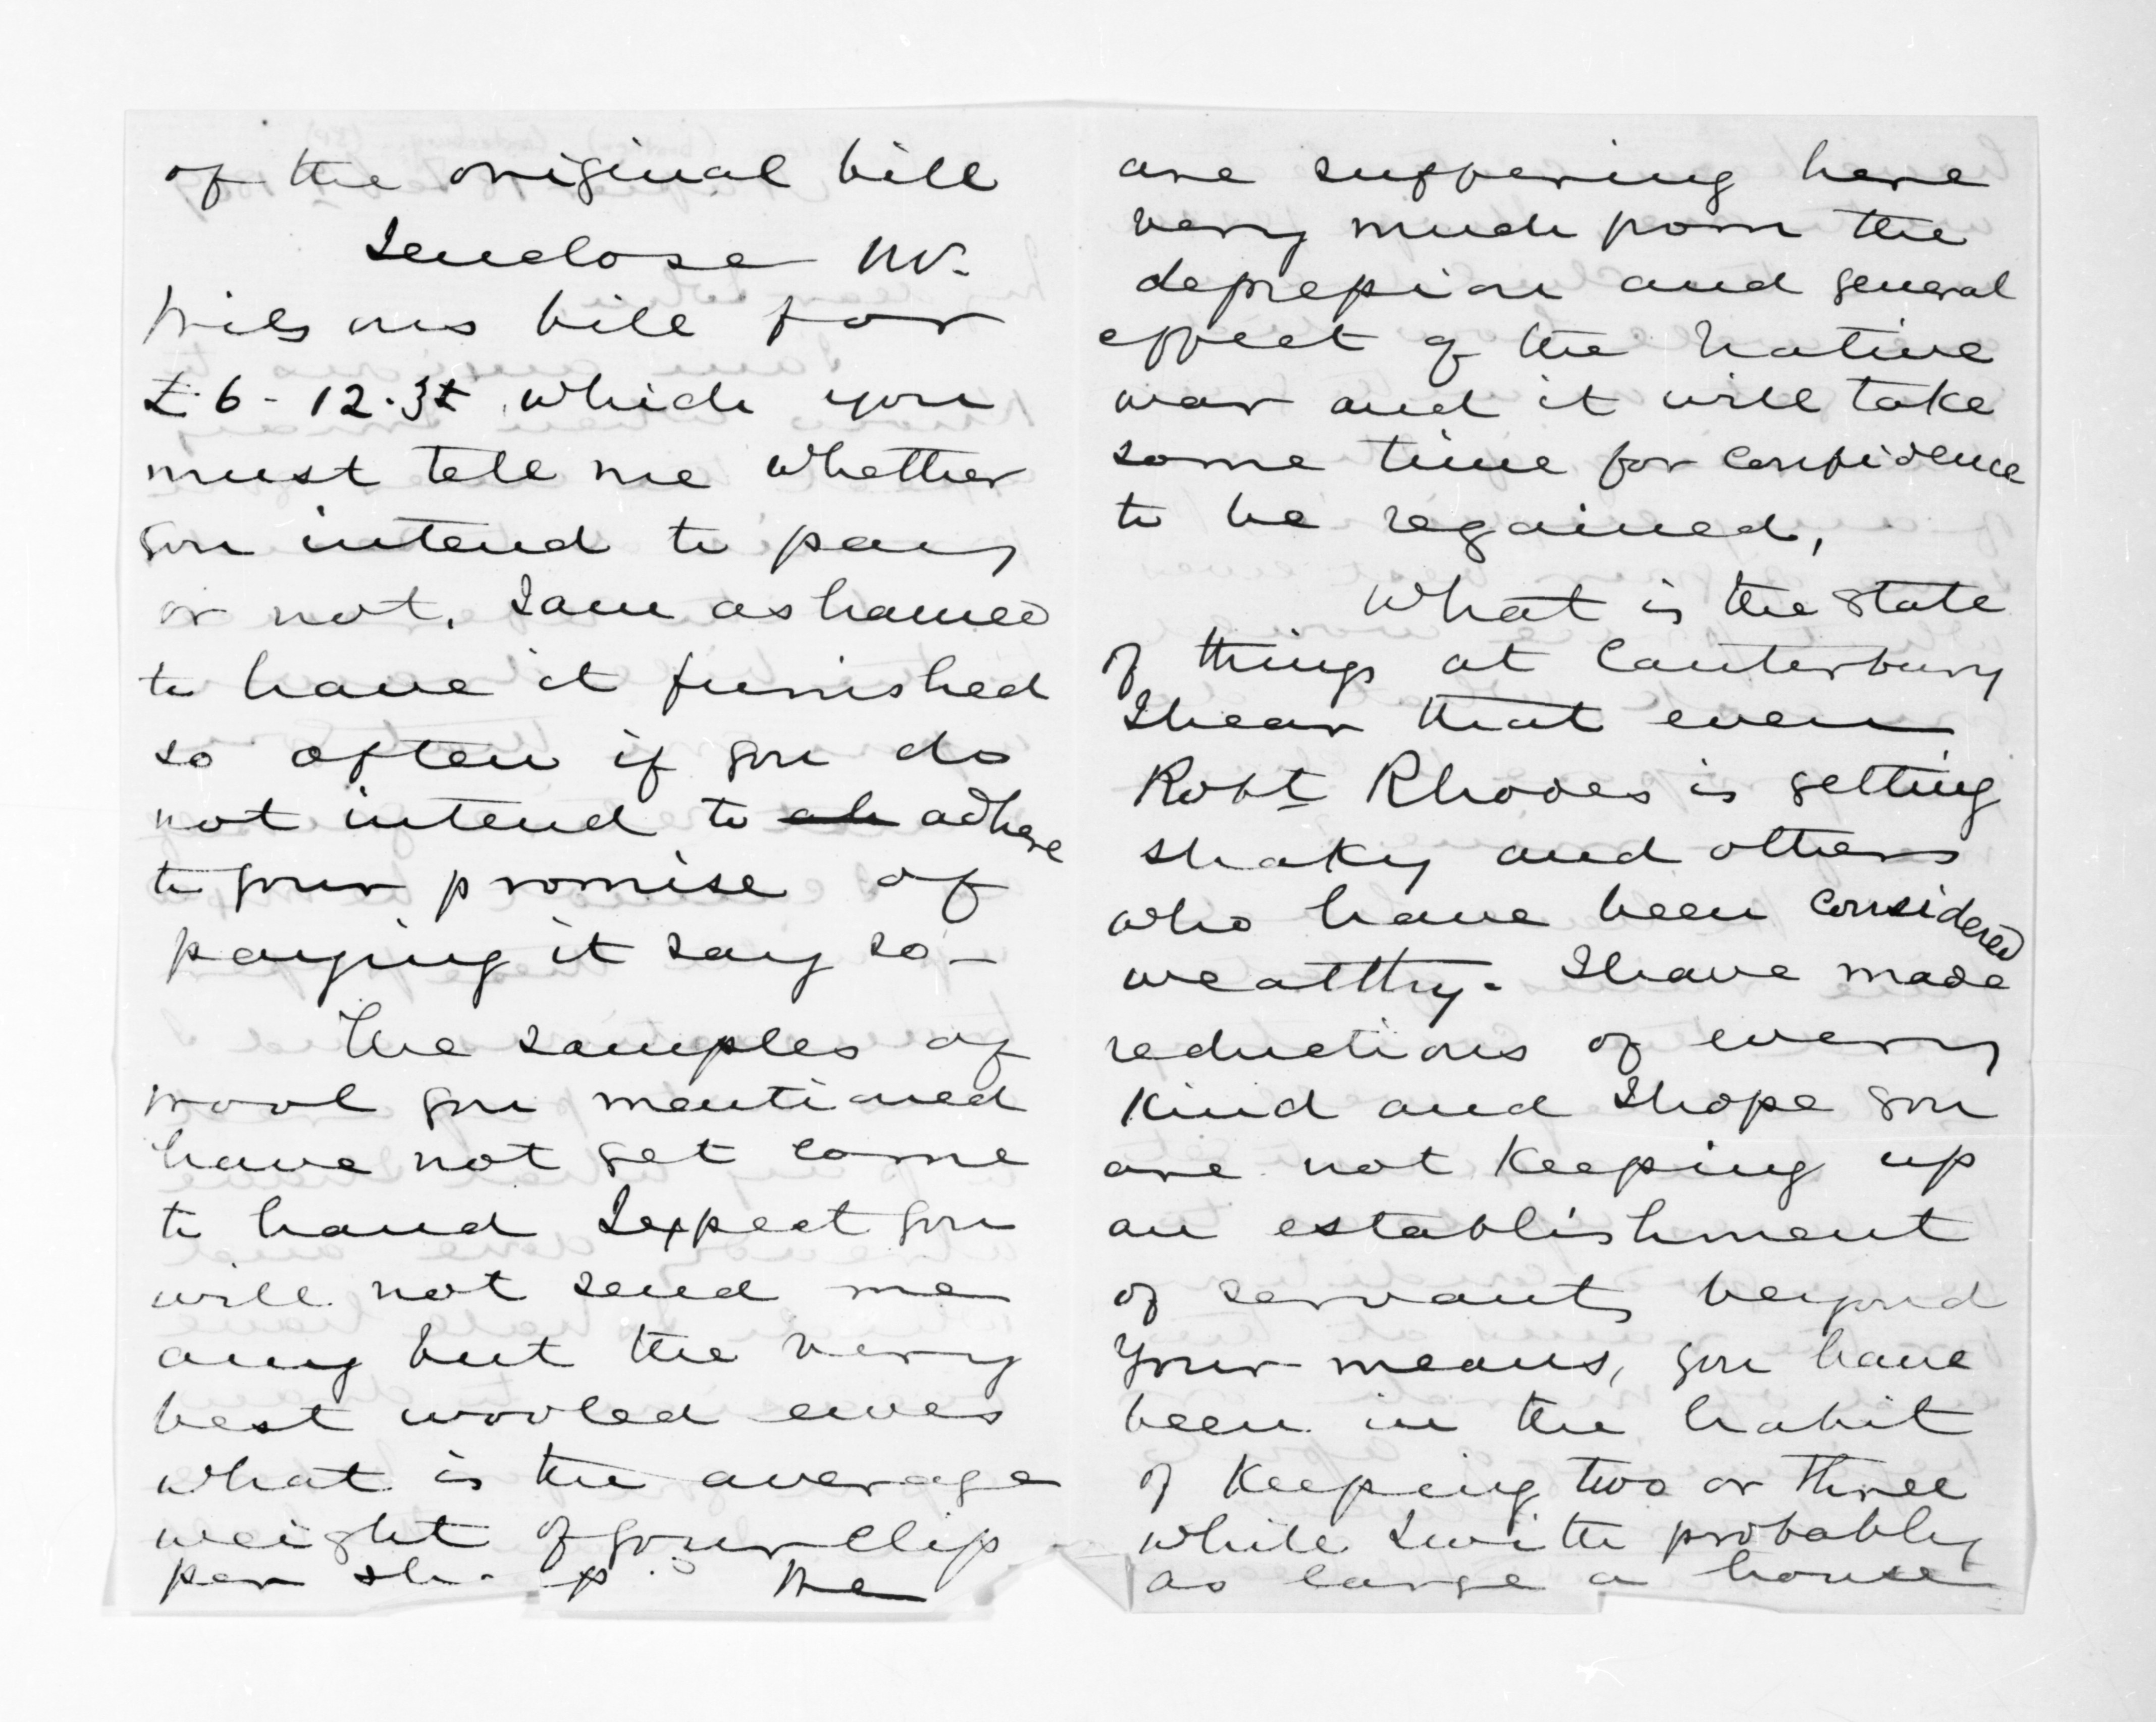 of the original bill
I enclose Mr.
Wilsons bill for
£6-12.3d which you
must tell me whether
you intend to pay
or not. I am ashamed
to have it furnished
so often if you do
not intend to ah adhere
to your promise of
paying it say so -
The samples of
wool you mentioned
have not yet come
to hand I expect you
will not send me
any but the very
best wooled ewes
what is the average
weight of your clip
per sh. p. We
are suffering here
very much from the
depression and general
effect of the Native
war and it will take
some time for confidence
to be regained,
What is the state
of things at Canterbury
I hear that even
Robt Rhodes is getting
shaky and others
who have been considered
wealthy. I have made
reductions of every
kind and I hope you
are not keeping up
an establishment
of servants beyond
your means, you have
been in the habit
of keeping two or three
while I with probably
as large a house